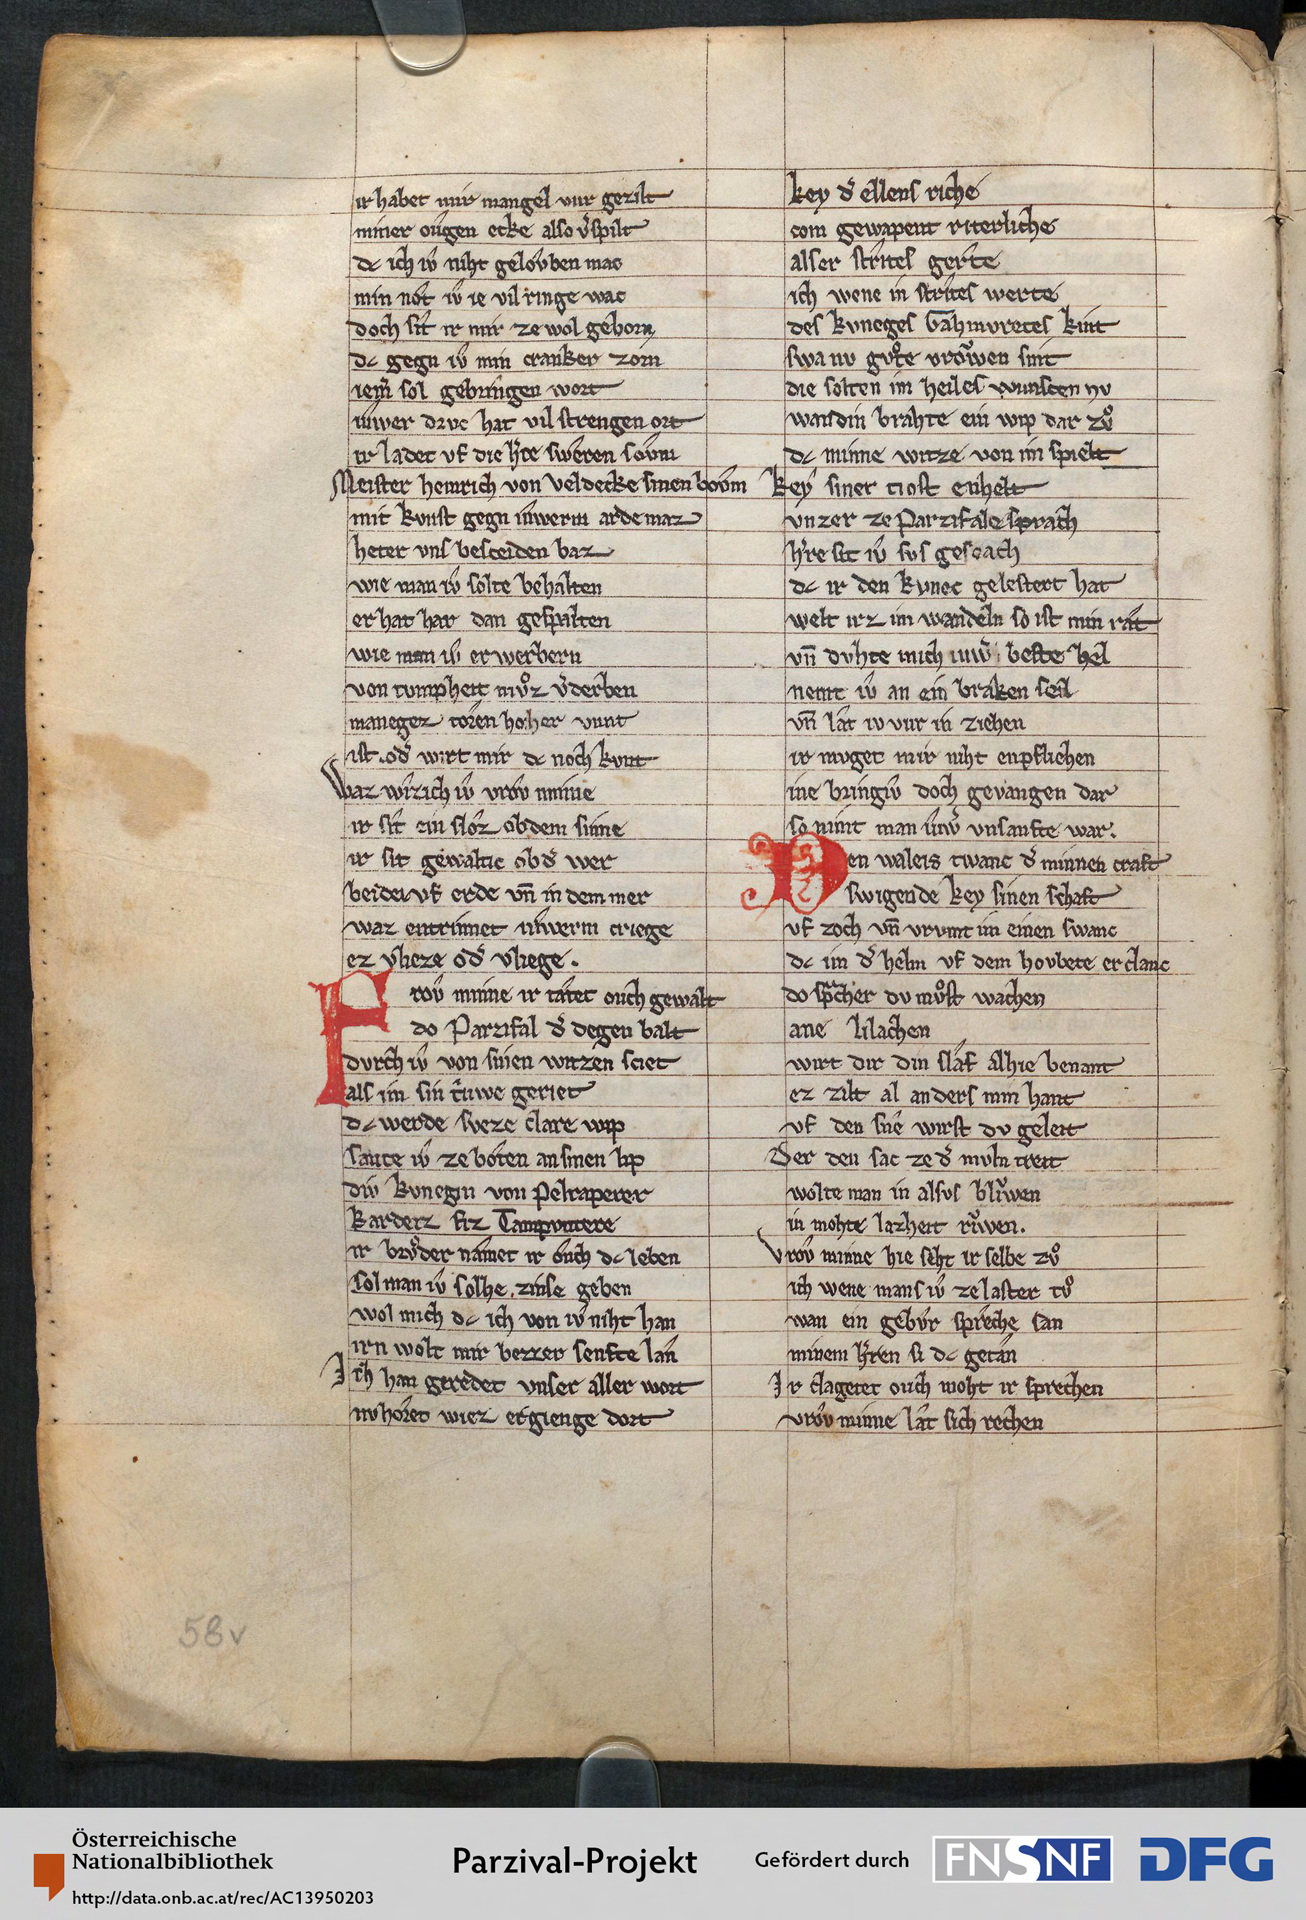 ir habet mir mangel vur gezilt
miner oͮgen ecke also v̓spilt
dc ich iv̂ niht geloͮben mac
min not iv̂ ie vil ringe wac
doch sit ir mir ze wol geborn
dc gegn iv̂ min cranker zorn
iem̄ sol gebringen wort
iuwer druc hat vil strengen ort
ir ladet vf die h̓te sweren soͮm
Meister heinrich von veldecke sinen boͮm
mit kvnst gegn iuwerm arde maz
heter vns besceiden baz
wie man iv̂ solte behalten
er hat har dan gespalten
wie man iv̂ erwerbern
von tumpheit mvͦz v̓derben
maneger toren hoher vunt
ist od̓ wirt mir dc noch kvnt
Waz wizich iv̂ vroͮ minne
ir sit ein sloz ob dem sinne
ir sit gewaltic ob d̓ wer
beide vf erde vn̄ in dem mer
waz entrinnet iuwerm criege
ez vlieze od̓ vliege.
Froͮ minne ir tatet ouch gewalt
do Parzifal d̓ degen balt
dvrch iv̂ von sinen witzen sciet
als im sin triuwe geriet
dc werde sveze clare wip
sante iv̂ ze boten an sinen lip
div̂ kvnegin von Pelraperer
karderz fiz Tampvntere
ir brvͦder namet ir ouch dc leben
sol man iv̂ solhe zinse geben
wol mich dc ich von iv̂ niht han
irn wolt mir bezzer senfte lan
Ich han geredet vnser aller wort
nv horet wiez ergienge dort
key d̓ ellens riche
com gewapent riterliche
alser strites gerte
ich wene in strites werte
des kvneges Gahmvretes kint
swa nv gvͦte vroͮwen sint
die solten im heiles wunscen nv
wandin brahte ein wip dar zvͦ
dc minne witze von im spielt
key siner tiost enhelt
vnzer ze Parzifale sprach
h̓re sit iv̂ svs gescach
dc ir den kvnec gelestert hat
welt irz im wandeln so ist min rat
vn̄ dvhte mich iuw̓ beste hel
nemt iv̂ an ein braken seil
vn̄ lat iv vur in ziehen
ir mvget mir niht enpfliehen
ine bringiv̂ doch gevangen dar
so nimt man iuw̓ vnsanfte war.
Den waleis twanc d̓ minnen craft
swigende key sinen schaft
vf zoch vn̄ vrvmt im einen swanc
dc im d̓ helm vf dem hovbete erclanc
do sprach er dv mvͦst wachen
ane lilachen
wirt dir din slaf alhie benant
ez zilt al anders min hant
vf den sne wirst dv geleit
Der den sac ze d̓ mvln treit
wolte man in alsvs blvͥwen
in mohte lazheit rvͥwen.
Vroͮ minne hie seht ir selbe zvͦ
ich wene mans iv̂ ze laster tvͦ
wan ein gebvr spreche san
minem h̓ren si dc getan
Ir clagetet ouch moht ir sprechen
vroͮ minne lat sich rechen
58v
Österreichische
Nationalbibliothek
http://data.onb.ac.at/rec/AC13950203
Parzival-Projekt
Gefördert durch
FNSNF
DFG